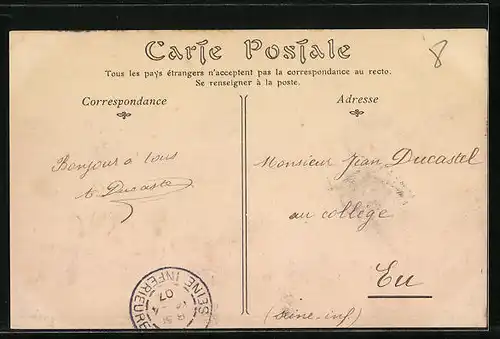 Carte Postale
Tous les pays étrangers n'acceptent pas la correspondance au recto.
Se renseigner à la poste.
Correspondance
Adresse
8
Bonjour à tous
Ducastel
Monsieur Jean Ducastel
au collège
Eu
(Seine-inf)
SEINE INFERIEURE
07